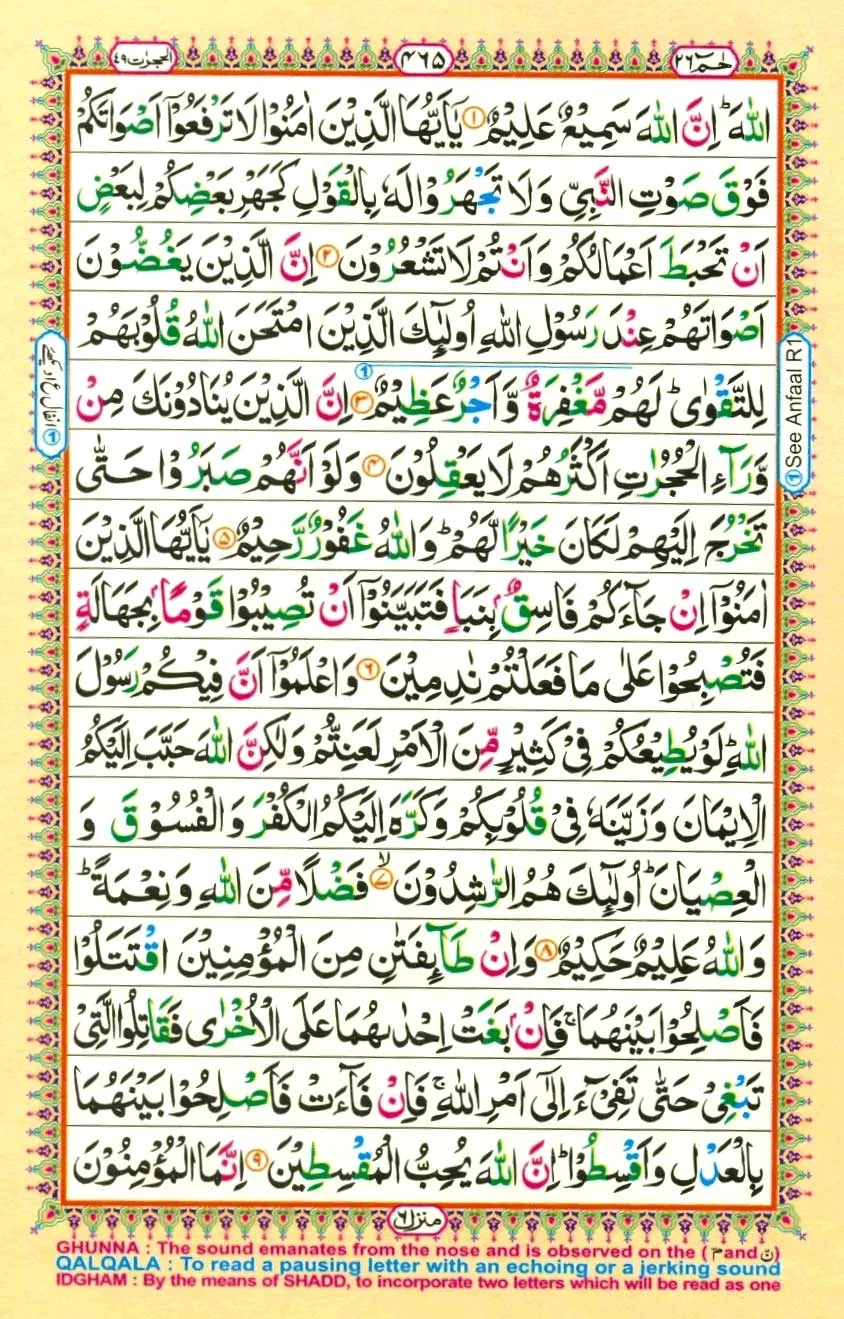 الحجرٰت ٤٩
٤٦٥
حٰمٓ ٢٦
اللّٰهَ ؕ اِنَّ اللّٰهَ سَمِيْعٌ عَلِيْمٌ ﴿۱﴾ يٰۤاَيُّهَا الَّذِيْنَ اٰمَنُوْا لَا تَرْفَعُوْۤا اَصْوَاتَكُمْ
فَوْقَ صَوْتِ النَّبِىِّ وَلَا تَجْهَرُوْا لَهٗ بِالْقَوْلِ كَجَهْرِ بَعْضِكُمْ لِبَعْضٍ
اَنْ تَحْبَطَ اَعْمَالُكُمْ وَاَنْتُمْ لَا تَشْعُرُوْنَ ﴿۲﴾ اِنَّ الَّذِيْنَ يَغُضُّوْنَ
اَصْوَاتَهُمْ عِنْدَ رَسُوْلِ اللّٰهِ اُولٰٓئِكَ الَّذِيْنَ امْتَحَنَ اللّٰهُ قُلُوْبَهُمْ
لِلتَّقْوٰى ؕ لَهُمْ مَّغْفِرَةٌ وَّاَجْرٌ عَظِيْمٌ ﴿۳﴾ ① اِنَّ الَّذِيْنَ يُنَادُوْنَكَ مِنْ
وَّرَآءِ الْحُجُرٰتِ اَكْثَرُهُمْ لَا يَعْقِلُوْنَ ﴿۴﴾ وَلَوْ اَنَّهُمْ صَبَرُوْا حَتّٰى
تَخْرُجَ اِلَيْهِمْ لَكَانَ خَيْرًا لَّهُمْ ؕ وَاللّٰهُ غَفُوْرٌ رَّحِيْمٌ ﴿۵﴾ يٰۤاَيُّهَا الَّذِيْنَ
اٰمَنُوْۤا اِنْ جَآءَكُمْ فَاسِقٌۢ بِنَبَاٍ فَتَبَيَّنُوْۤا اَنْ تُصِيْبُوْا قَوْمًاۢ بِجَهَالَةٍ
فَتُصْبِحُوْا عَلٰى مَا فَعَلْتُمْ نٰدِمِيْنَ ﴿۶﴾ وَاعْلَمُوْۤا اَنَّ فِيْكُمْ رَسُوْلَ
اللّٰهِ ؕ لَوْ يُطِيْعُكُمْ فِىْ كَثِيْرٍ مِّنَ الْاَمْرِ لَعَنِتُّمْ وَلٰكِنَّ اللّٰهَ حَبَّبَ اِلَيْكُمُ
الْاِيْمَانَ وَزَيَّنَهٗ فِىْ قُلُوْبِكُمْ وَكَرَّهَ اِلَيْكُمُ الْكُفْرَ وَالْفُسُوْقَ وَ
الْعِصْيَانَ ؕ اُولٰٓئِكَ هُمُ الرّٰشِدُوْنَ ﴿۷﴾ ۙ فَضْلًا مِّنَ اللّٰهِ وَنِعْمَةً ؕ
وَاللّٰهُ عَلِيْمٌ حَكِيْمٌ ﴿۸﴾ وَاِنْ طَآئِفَتٰنِ مِنَ الْمُؤْمِنِيْنَ اقْتَتَلُوْا
فَاَصْلِحُوْا بَيْنَهُمَا ۚ فَاِنْۢ بَغَتْ اِحْدٰىهُمَا عَلَى الْاُخْرٰى فَقَاتِلُوا الَّتِىْ
تَبْغِىْ حَتّٰى تَفِىْٓءَ اِلٰٓى اَمْرِ اللّٰهِ ۚ فَاِنْ فَآءَتْ فَاَصْلِحُوْا بَيْنَهُمَا
بِالْعَدْلِ وَاَقْسِطُوْا ؕ اِنَّ اللّٰهَ يُحِبُّ الْمُقْسِطِيْنَ ﴿۹﴾ اِنَّمَا الْمُؤْمِنُوْنَ
① See Anfaal R1
انفال ع۱ دیکھیے ①
منزل ٦
GHUNNA : The sound emanates from the nose and is observed on the ( مّ and نّ )
QALQALA : To read a pausing letter with an echoing or a jerking sound
IDGHAM : By the means of SHADD, to incorporate two letters which will be read as one